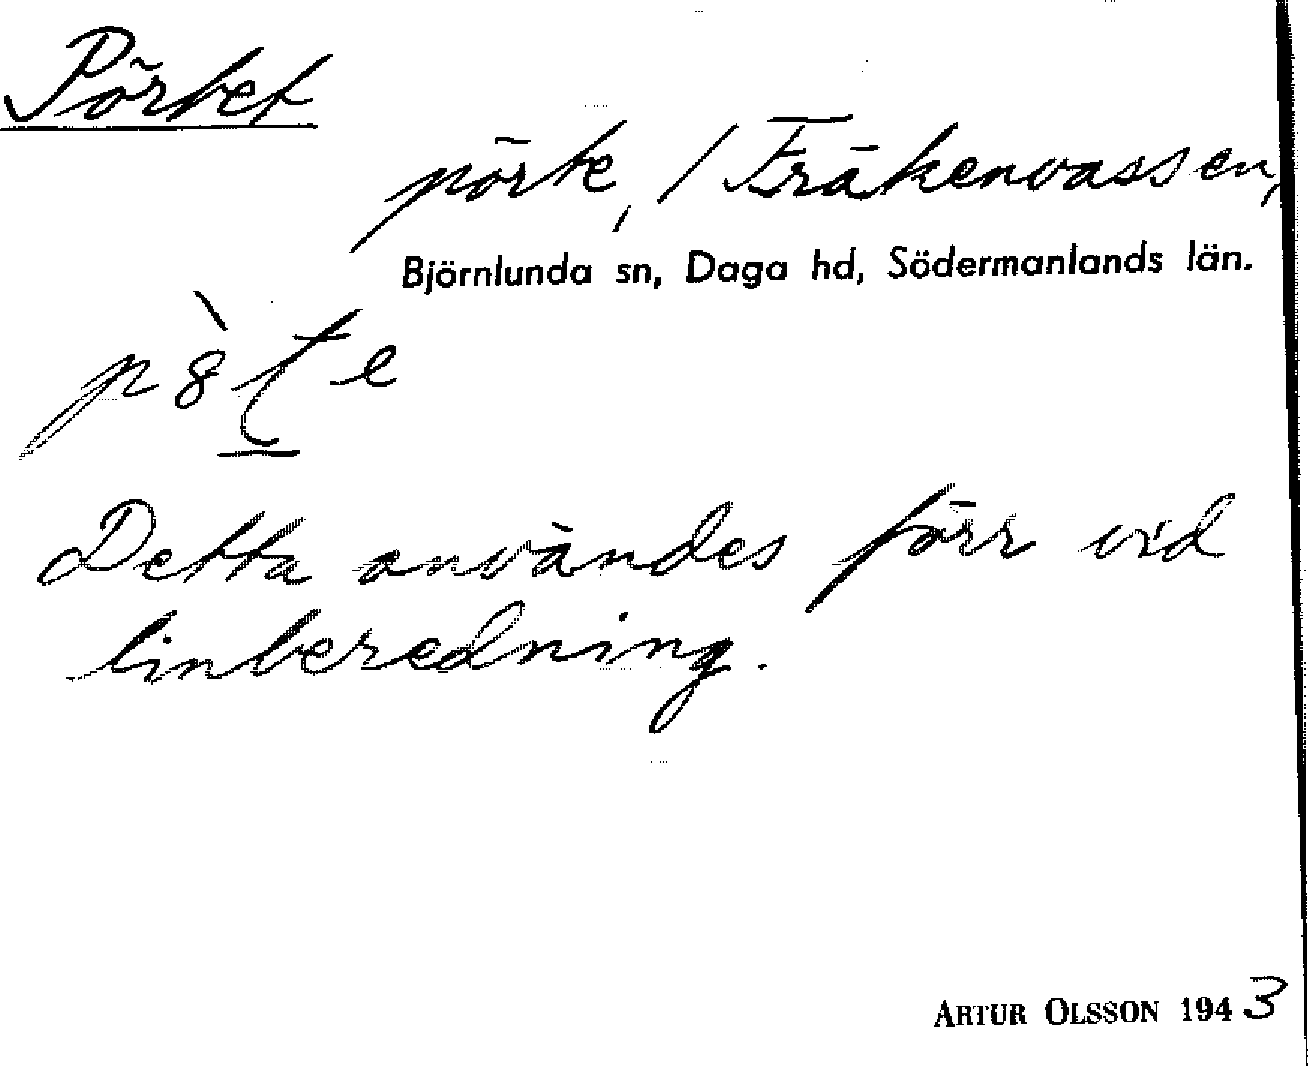 Pörtet
pörte, / Fräkenvassen,
Björnlunda sn, Daga hd, Södermanlands län.
Detta användes förr vid
linberedning.
ARTUR OLSSON 1943